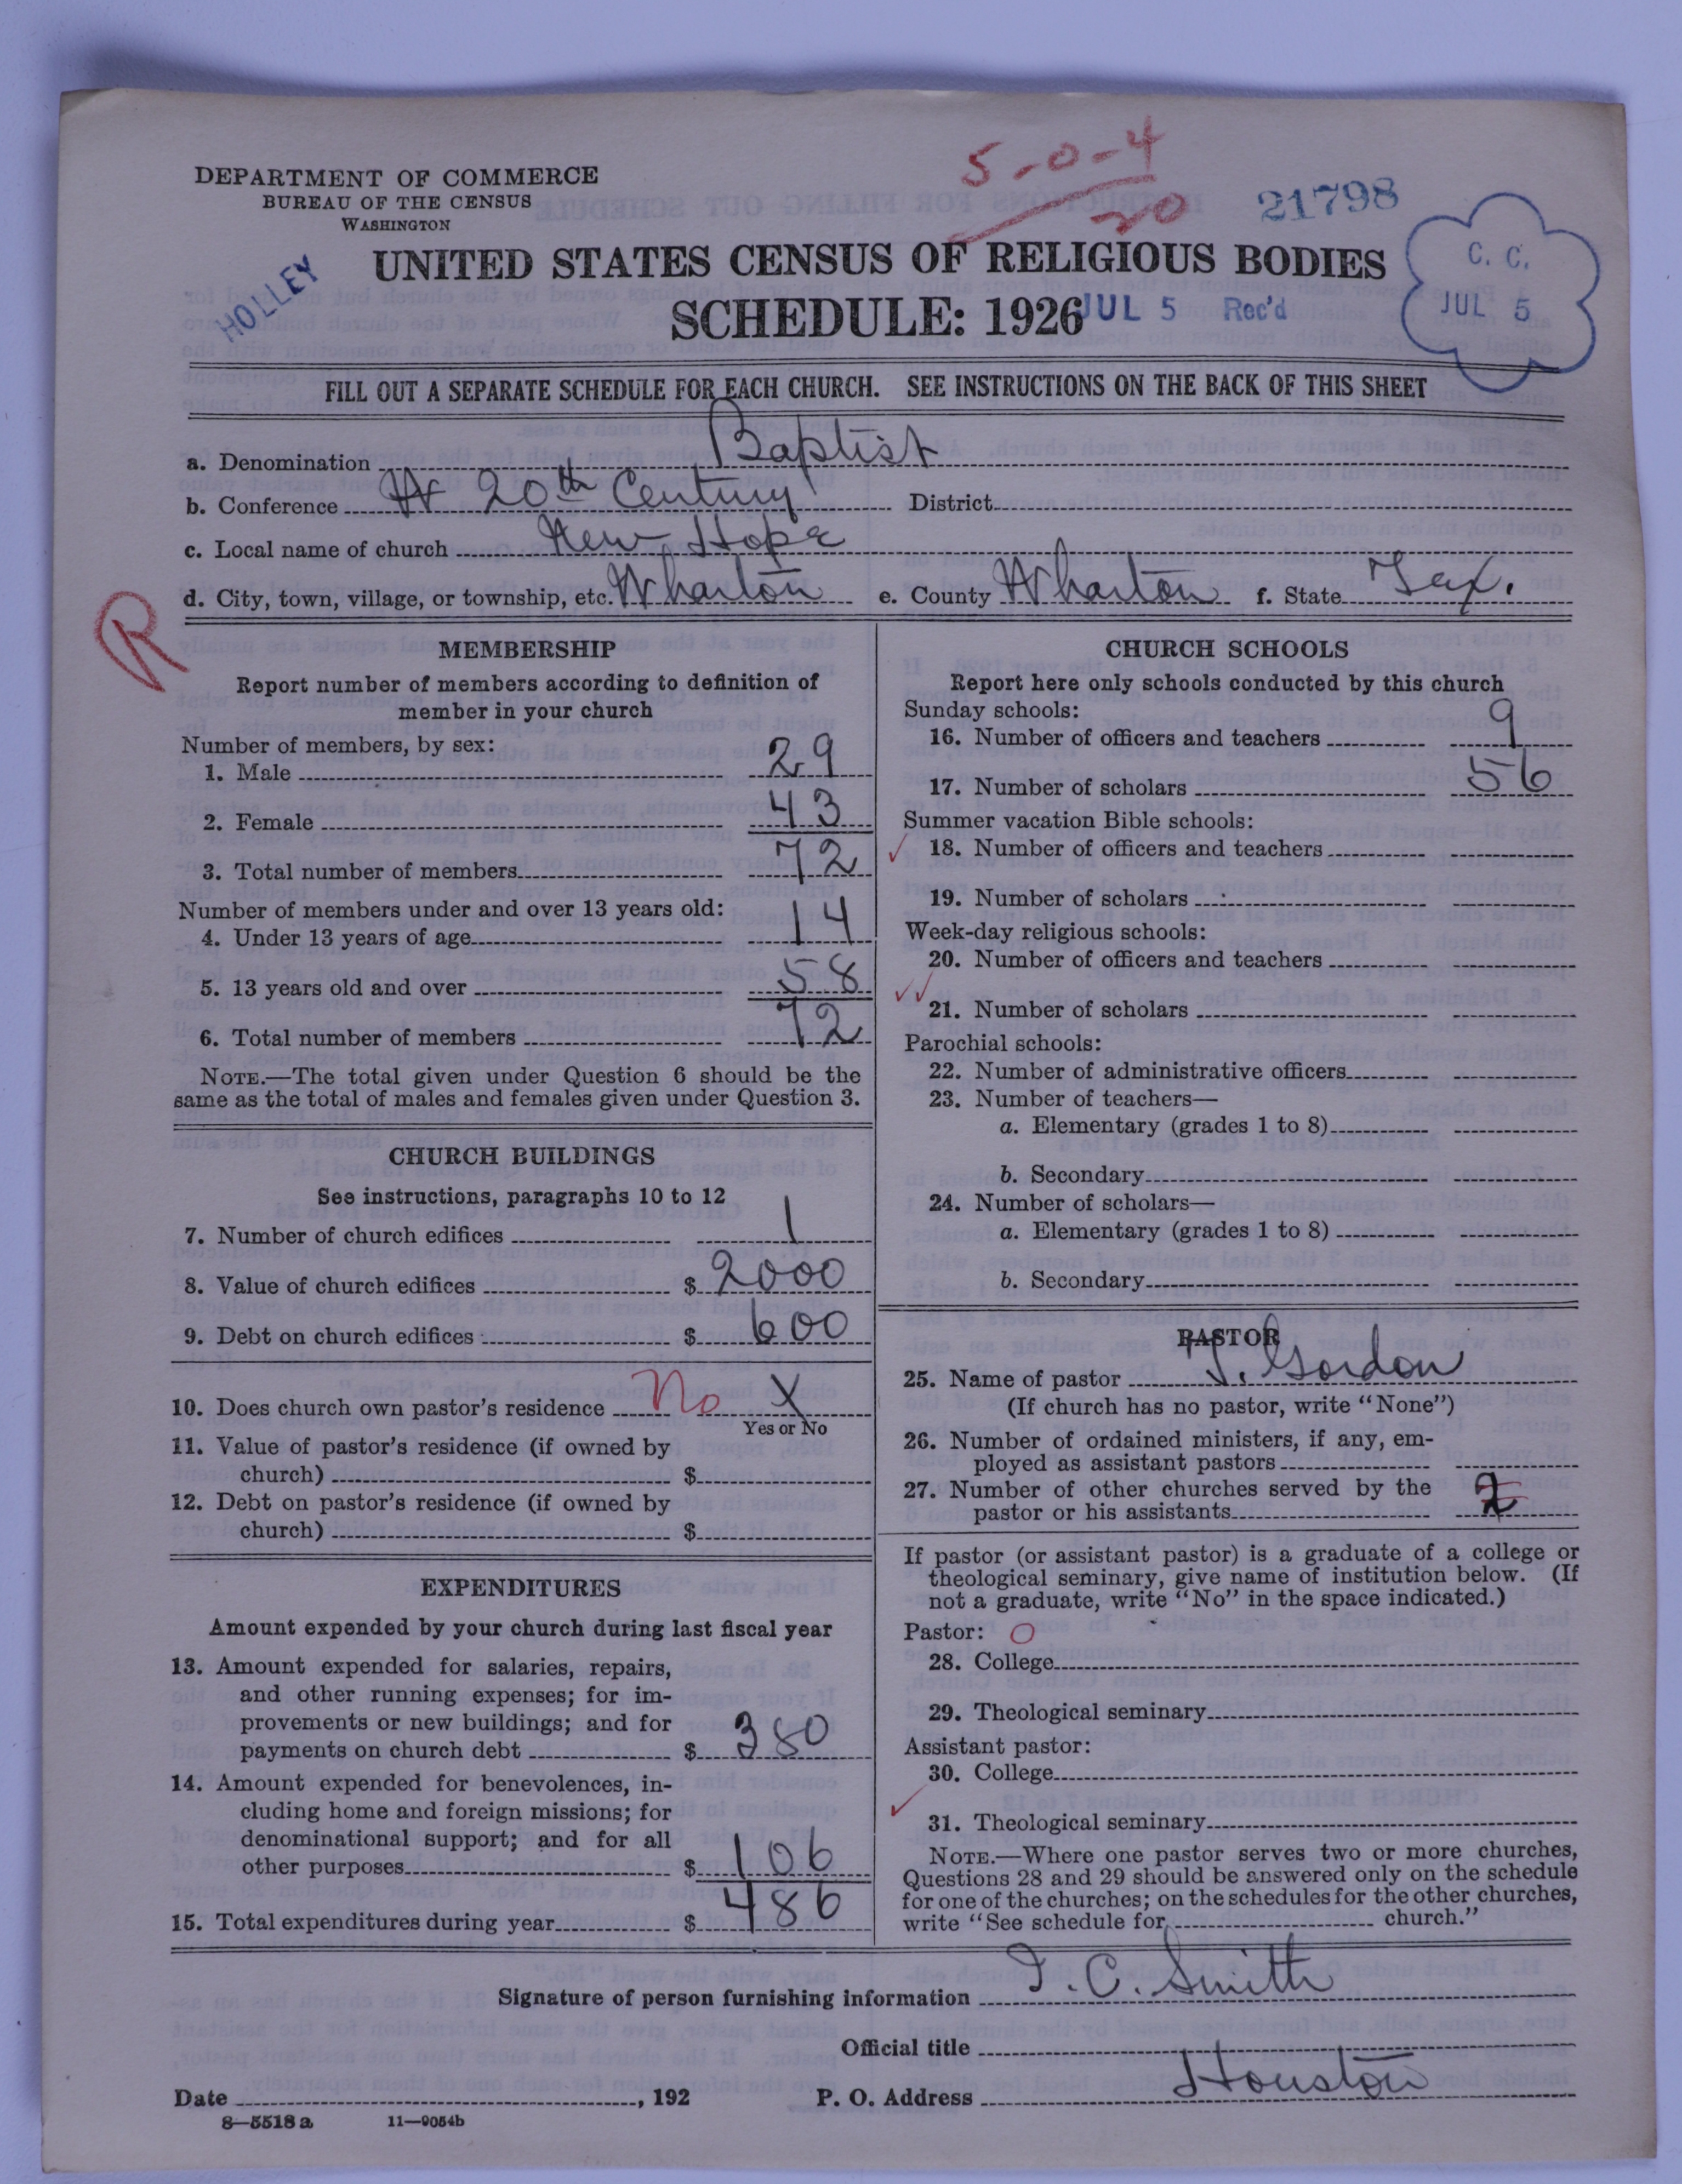 5-0-4
20
21798
DEPARTMENT OF COMMERCE
BUREAU OF THE CENSUS
WASHINGTON
HOLLEY
UNITED STATES CENSUS OF RELIGIOUS BODIES
SCHEDULE: 1926
JUL 5 Rec'd
C. C.
JUL 5
FILL OUT A SEPARATE SCHEDULE FOR EACH CHURCH. SEE INSTRUCTIONS ON THE BACK OF THIS SHEET
a. Denomination Baptist
b. Conference 20th Century District
c. Local name of church New Hope
d. City, town, village, or township, etc. Wharton e. County Wharton f. State Tex.
R
MEMBERSHIP
Report number of members according to definition of
member in your church
Number of members, by sex:
1. Male 29
2. Female 43
3. Total number of members 72
Number of members under and over 13 years old:
4. Under 13 years of age 14
5. 13 years old and over 58
6. Total number of members 72
NOTE.—The total given under Question 6 should be the
same as the total of males and females given under Question 3.
CHURCH BUILDINGS
See instructions, paragraphs 10 to 12
7. Number of church edifices 1
8. Value of church edifices $ 2000
9. Debt on church edifices $ 600
10. Does church own pastor's residence No X
Yes or No
11. Value of pastor's residence (if owned by
church) $
12. Debt on pastor's residence (if owned by
church) $
EXPENDITURES
Amount expended by your church during last fiscal year
13. Amount expended for salaries, repairs,
and other running expenses; for im-
provements or new buildings; and for
payments on church debt $ 380
14. Amount expended for benevolences, in-
cluding home and foreign missions; for
denominational support; and for all
other purposes $ 106
15. Total expenditures during year $ 486
CHURCH SCHOOLS
Report here only schools conducted by this church
Sunday schools:
16. Number of officers and teachers 9
17. Number of scholars 56
Summer vacation Bible schools:
18. Number of officers and teachers
19. Number of scholars
Week-day religious schools:
20. Number of officers and teachers
21. Number of scholars
Parochial schools:
22. Number of administrative officers
23. Number of teachers—
a. Elementary (grades 1 to 8)
b. Secondary
24. Number of scholars—
a. Elementary (grades 1 to 8)
b. Secondary
PASTOR
25. Name of pastor J. Gordon
(If church has no pastor, write "None")
26. Number of ordained ministers, if any, em-
ployed as assistant pastors
27. Number of other churches served by the
pastor or his assistants 2
If pastor (or assistant pastor) is a graduate of a college or
theological seminary, give name of institution below. (If
not a graduate, write "No" in the space indicated.)
Pastor: O
28. College
29. Theological seminary
Assistant pastor:
30. College
31. Theological seminary
NOTE.—Where one pastor serves two or more churches,
Questions 28 and 29 should be answered only on the schedule
for one of the churches; on the schedules for the other churches,
write "See schedule for church."
Signature of person furnishing information J. C. Smith
Official title
Date , 192 P. O. Address Houston
8—5518 a 11—9054b